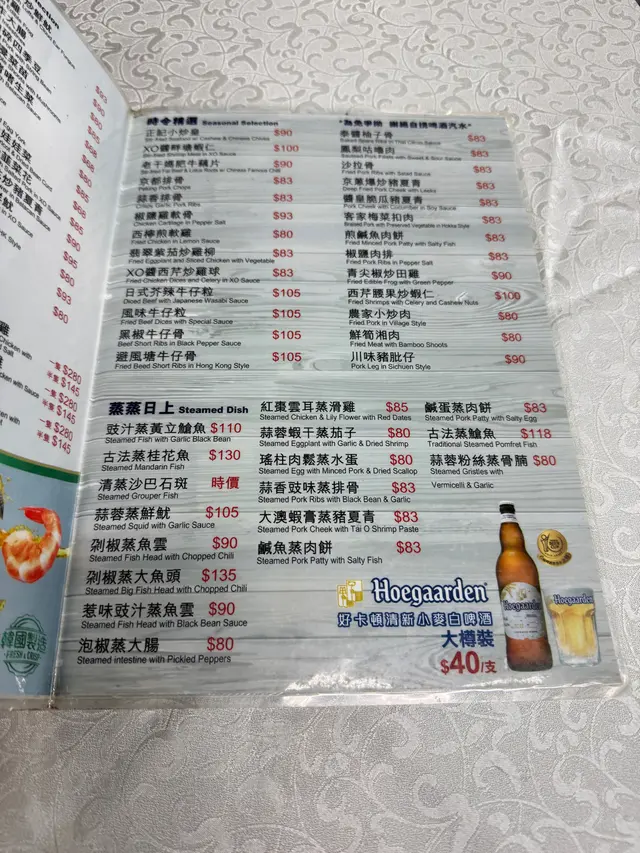 $93
$90
$80
$90
$80
$85
$55
$68
$85
$90
$95
$80
$93
$80
一隻 $280
半隻 $145
一隻 $280
半隻 $145
一隻 $280
半隻 $145
時令精選 Seasonal Selection
正記小炒皇 $90
XO醬畔塘蝦仁 $100
Stir-fried Shrimp Meat in XO Sauce
老干媽肥牛藕片 $90
京都排骨 $83
Peking Pork Chops
蒜香排骨 $83
Crispy Garlic Pork Ribs
椒鹽雞軟骨 $93
Chicken Cartilage in Pepper Salt
西檸煎軟雞 $80
Fried Chicken in Lemon Sauce
翡翠紫茄炒雞柳 $83
Fried Eggplant and Sliced Chicken with Vegetable
XO醬西芹炒雞球 $83
Fried Chicken Dices and Celery in XO Sauce
日式芥辣牛仔粒 $105
Diced Beef with Japanese Wasabi Sauce
風味牛仔粒 $105
Fried Beef Dices with Special Sauce
黑椒牛仔骨 $105
Beef Short Ribs in Black Pepper Sauce
避風塘牛仔骨 $105
Fried Beef Short Ribs in Hong Kong Style
泰醬柚子骨 $83
鳳梨咕嚕肉 $83
Sautéed Pork Fillets with Sweet & Sour Sauce
沙拉骨 $83
Fried Pork Ribs with Salad Sauce
京蔥爆炒豬夏青 $83
Deep Fried Pork Cheek with Leeks
醬皇脆瓜豬夏青 $83
Pork Cheek with Cucumber in Soy Sauce
客家梅菜扣肉 $83
Braised Pork with Preserved Vegetable in Hakka Style
煎鹹魚肉餅 $83
Fried Minced Pork Patty with Salty Fish
椒鹽肉排 $83
Fried Pork Ribs in Pepper Salt
青尖椒炒田雞 $90
Fried Edible Frog with Green Pepper
西芹腰果炒蝦仁 $100
Fried Shrimps with Celery and Cashew Nuts
農家小炒肉 $80
Fried Pork in Village Style
鮮筍湘肉 $80
Fried Meat with Bamboo Shoots
川味豬肶仔 $90
Pork Leg in Sichuen Style
蒸蒸日上 Steamed Dish
豉汁蒸黃立鱠魚 $110
Steamed Fish with Garlic Black Bean
古法蒸桂花魚 $130
Steamed Mandarin Fish
清蒸沙巴石斑 時價
Steamed Grouper Fish
蒜蓉蒸鮮魷 $105
Steamed Squid with Garlic Sauce
剁椒蒸魚雲 $90
Steamed Fish Head with Chopped Chili
剁椒蒸大魚頭 $135
Steamed Big Fish Head with Chopped Chili
惹味豉汁蒸魚雲 $90
Steamed Fish Head with Black Bean Sauce
泡椒蒸大腸 $80
Steamed intestine with Pickled Peppers
紅棗雲耳蒸滑雞 $85
Steamed Chicken & Lily Flower with Red Dates
蒜蓉蝦干蒸茄子 $80
Steamed Eggplant with Garlic & Dried Shrimp
瑤柱肉鬆蒸水蛋 $80
Steamed Egg with Minced Pork & Dried Scallop
蒜香豉味蒸排骨 $83
Steamed Pork Ribs with Black Bean & Garlic
大澳蝦膏蒸豬夏青 $83
Steamed Pork Cheek with Tai O Shrimp Paste
鹹魚蒸肉餅 $83
Steamed Pork Patty with Salty Fish
鹹蛋蒸肉餅 $83
Steamed Pork Patty with Salty Egg
古法蒸鱠魚 $118
Steamed Traditional Pomfret Fish
蒜蓉粉絲蒸骨腩 $80
Steamed Gristles with
Vermicelli & Garlic
Hoegaarden
好卡頓清新小麥白啤酒
大樽裝
$40/支
Hoegaarden
Hoegaarden